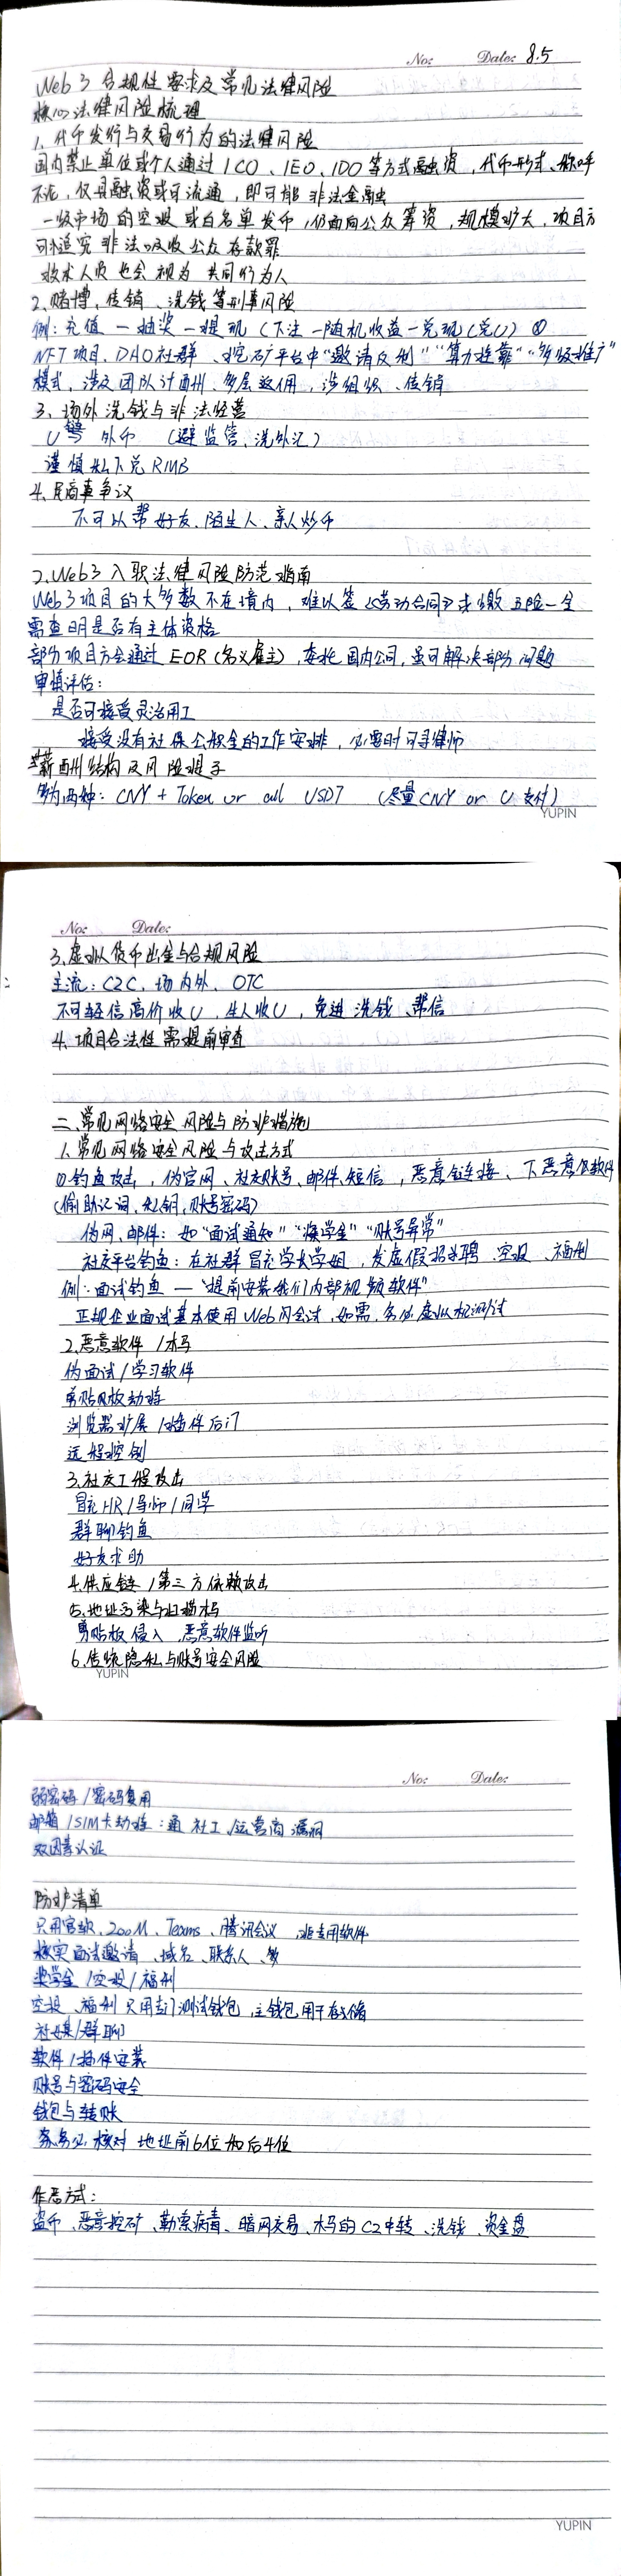 No: Date: 8.5
Web3合规性要求及常见法律风险
核心法律风险梳理
1、代币发行与交易行为的法律风险
国内禁止单位或个人通过ICO、IEO、IDO等方式融资，代币形式、称呼
不论，仅具融资或可流通，即可能非法金融
一级市场的空投或白名单发币，仍面向公众筹资，规模扩大，项目方
可追究非法吸收公众存款罪
技术人员也会视为共同行为人
2、赌博、传销、洗钱等刑事风险
例：充值一抽奖一提现（下注一随机收益一兑现（兑U）
NFT项目、DAO社群、挖矿平台中“邀请返利”“算力挂靠”“多级推广”
模式，涉及团队计酬、多层返佣，涉组织、传销
3、场外洗钱与非法经营
U 外币（避监管、洗外汇）
谨慎私下兑RMB
4、民商事争议
不可以帮好友、陌生人、亲人炒币
2、Web3入职法律风险防范指南
Web3项目的大多数不在境内，难以签《劳动合同》或缴五险一金
需查明是否有主体资格
部分项目方会通过EOR（名义雇主），委托国内公司，虽可解决部分问题
审慎评估：
是否可接受灵活用工
接受没有社保公积金的工作安排，必要时可寻律师
薪酬结构及风险提示
多为两种：CNY + Token or all USDT （尽量CNY or U支付）
YUPIN
No: Date:
3、虚拟货币出金与合规风险
主流：C2C、场内外、OTC
不可轻信高价收U，生人收U，免进洗钱、帮信
4、项目合法性需提前审查
二、常见网络安全风险与防护措施
1、常见网络安全风险与攻击方式
①钓鱼攻击，伪官网、社交账号、邮件、短信，恶意链接、下恶意软件
（偷助记词、私钥、账号密码）
伪网、邮件：如“面试通知”“奖学金”“账号异常”
社交平台钓鱼：在社群冒充学长学姐，发虚假招聘、空投、福利
例：面试钓鱼—“提前安装我们内部视频软件”
正规企业面试基本使用Web网会试，如需，务必虚拟机测试
2、恶意软件/木马
伪面试/学习软件
剪贴板劫持
浏览器扩展/插件后门
远程控制
3、社交工程攻击
冒充HR/导师/同学
群聊钓鱼
好友求助
4、供应链/第三方依赖攻击
5、地址污染与扫描木马
剪贴板侵入、恶意软件监听
6、传统隐私与账号安全风险
YUPIN
No: Date:
弱密码/密码复用
邮箱/SIM卡劫持：通社工、运营商漏洞
双因素认证
防护清单
只用官软，ZOOM、Teams、腾讯会议，非专用软件
核实面试邀请、域名、联系人、
奖学金/空投/福利
空投、福利只用专门测试钱包，主钱包用于存储
社媒/群聊
软件/插件安装
账号与密码安全
钱包与转账
务必核对地址前6位和后4位
作恶方式：
盗币、恶意挖矿、勒索病毒、暗网交易、木马的C2中转、洗钱、资金盘
YUPIN